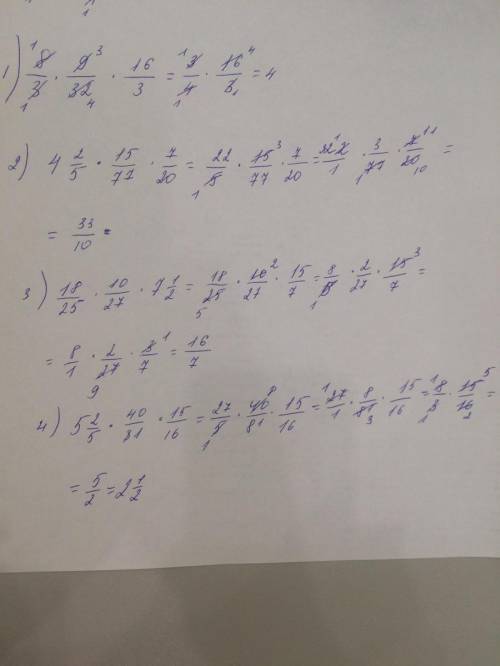 1) 8/3 · 9/32 · 16/3 = 3/4 · 16/3 = 4
2) 4 2/5 · 15/77 · 7/20 = 22/5 · 15/77 · 7/20 = 22/1 · 3/77 · 7/20 =
= 33/10
3) 18/25 · 10/27 · 7 1/2 = 18/25 · 10/27 · 15/7 = 8/5 · 2/27 · 15/7 =
= 8/1 · 2/27 · 3/7 = 16/7
4) 5 2/5 · 40/81 · 15/16 = 27/5 · 40/81 · 15/16 = 27/1 · 8/81 · 15/16 = 8/3 · 15/16 =
= 5/2 = 2 1/2